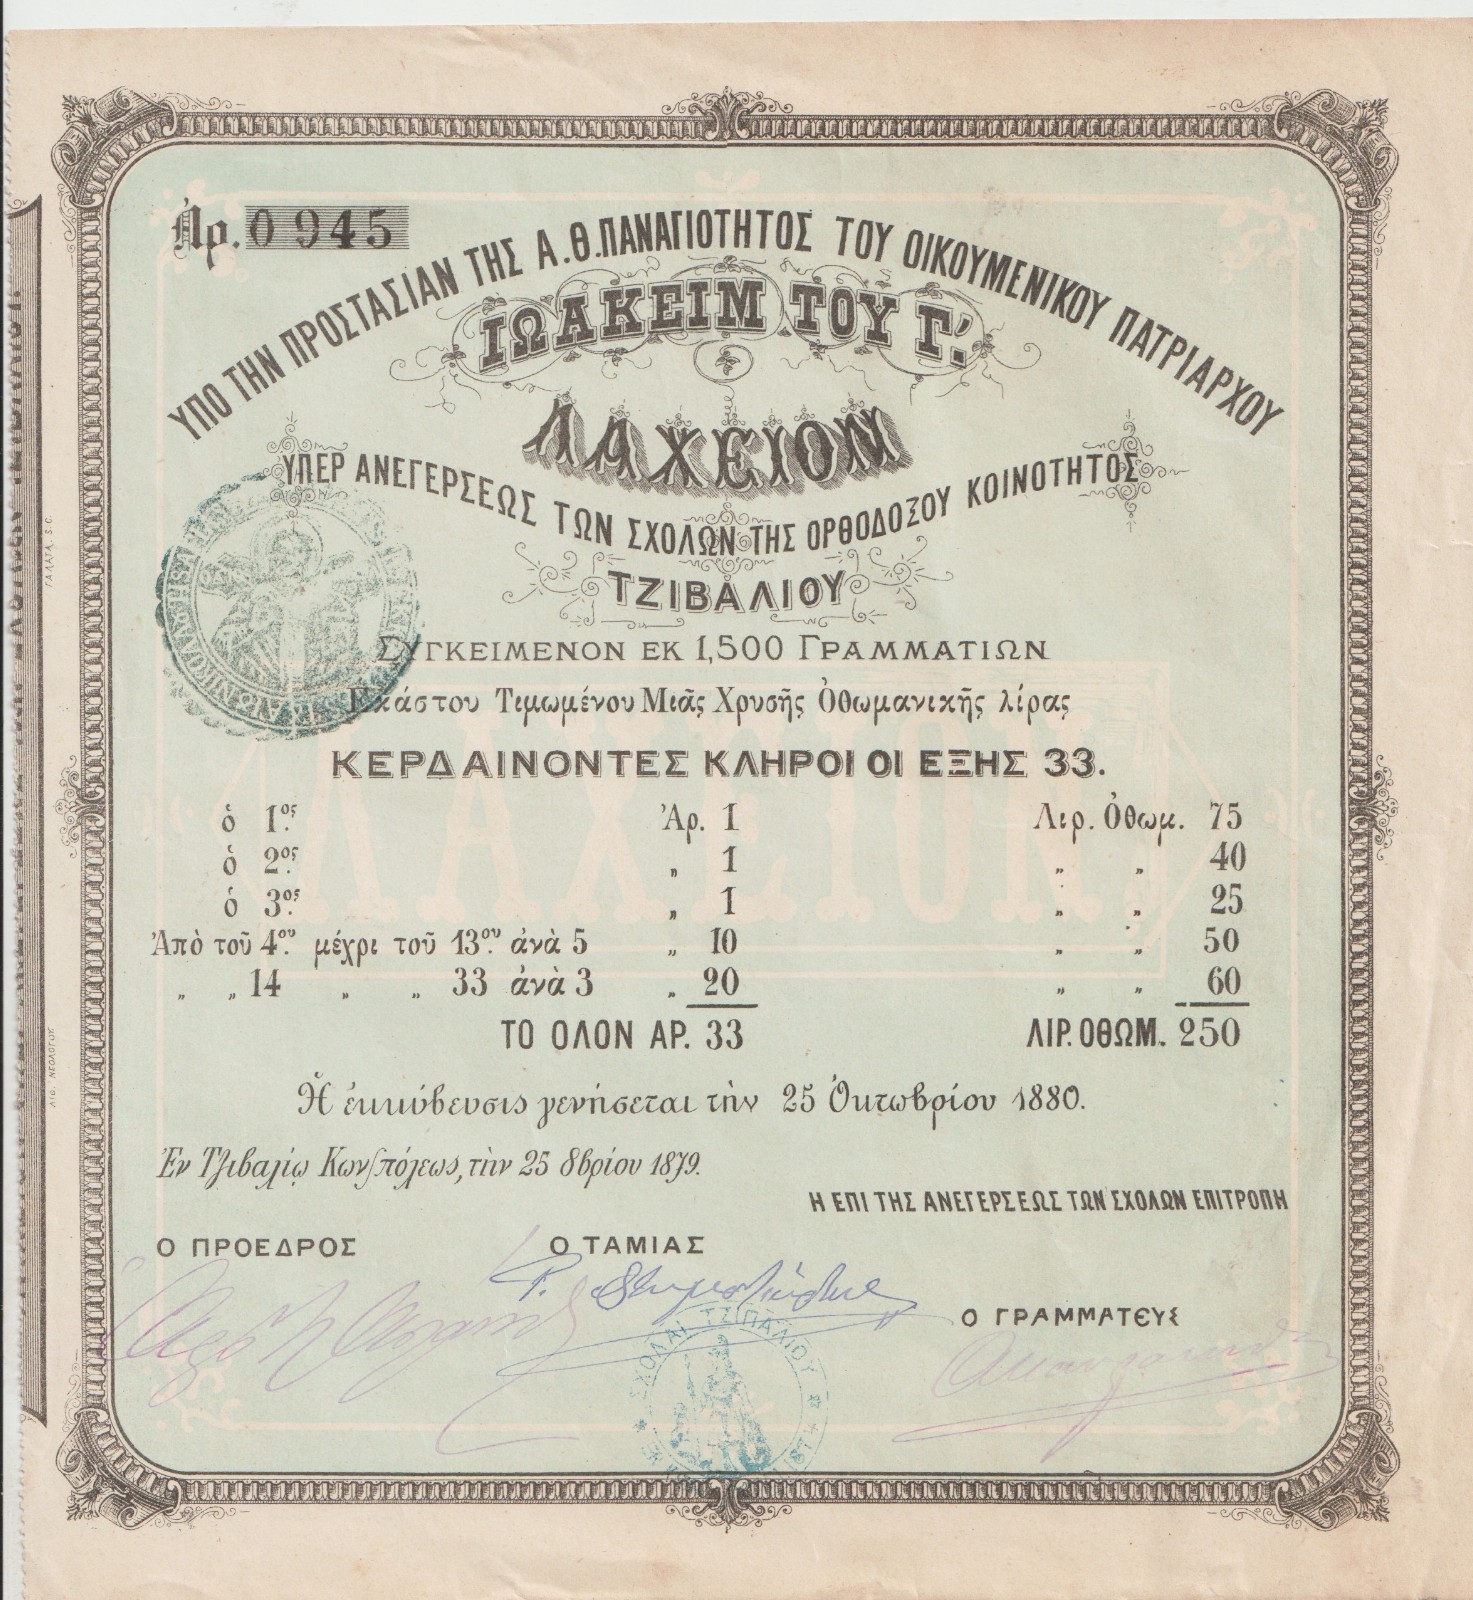 Ἀρ. 0945
ΥΠΟ ΤΗΝ ΠΡΟΣΤΑΣΙΑΝ ΤΗΣ Α.Θ.ΠΑΝΑΓΙΟΤΗΤΟΣ ΤΟΥ ΟΙΚΟΥΜΕΝΙΚΟΥ ΠΑΤΡΙΑΡΧΟΥ
ΙΩΑΚΕΙΜ ΤΟΥ Γ'.
ΛΑΧΕΙΟΝ
ΥΠΕΡ ΑΝΕΓΕΡΣΕΩΣ ΤΩΝ ΣΧΟΛΩΝ ΤΗΣ ΟΡΘΟΔΟΞΟΥ ΚΟΙΝΟΤΗΤΟΣ
ΤΖΙΒΑΛΙΟΥ
ΣΥΓΚΕΙΜΕΝΟΝ ΕΚ 1,500 ΓΡΑΜΜΑΤΙΩΝ
Εκάστου Τιμωμένου Μιᾶς Χρυσῆς Ὀθωμανικῆς λίρας
ΚΕΡΔΑΙΝΟΝΤΕΣ ΚΛΗΡΟΙ ΟΙ ΕΞΗΣ 33.
ὁ 1ος. Ἀρ. 1 Λιρ. Ὀθωμ. 75
ὁ 2ος. „ 1 „ „ 40
ὁ 3ος. „ 1 „ „ 25
Ἀπὸ τοῦ 4ου. μέχρι τοῦ 13ου. ἀνὰ 5 „ 10 „ „ 50
„ „ 14 „ „ 33 ἀνὰ 3 „ 20 „ „ 60
ΤΟ ΟΛΟΝ ΑΡ. 33 ΛΙΡ. ΟΘΩΜ. 250
Ἡ ἐκκύβευσις γενήσεται τὴν 25 Ὀκτωβρίου 1880.
Ἐν Τζιβαλίῳ Κωνστπόλεως, τὴν 25 8βρίου 1879.
Η ΕΠΙ ΤΗΣ ΑΝΕΓΕΡΣΕΩΣ ΤΩΝ ΣΧΟΛΩΝ ΕΠΙΤΡΟΠΗ
Ο ΠΡΟΕΔΡΟΣ Ο ΤΑΜΙΑΣ
Ο ΓΡΑΜΜΑΤΕΥΣ
ΣΧΟΛΑΙ ΤΖΙΠΑΛΙΟΥ
ΛΑΧΕΙΟΝ
ΓΑΛΑΤΑ, S.C.
ΛΙΘ. ΝΕΟΛΟΓΟΥ